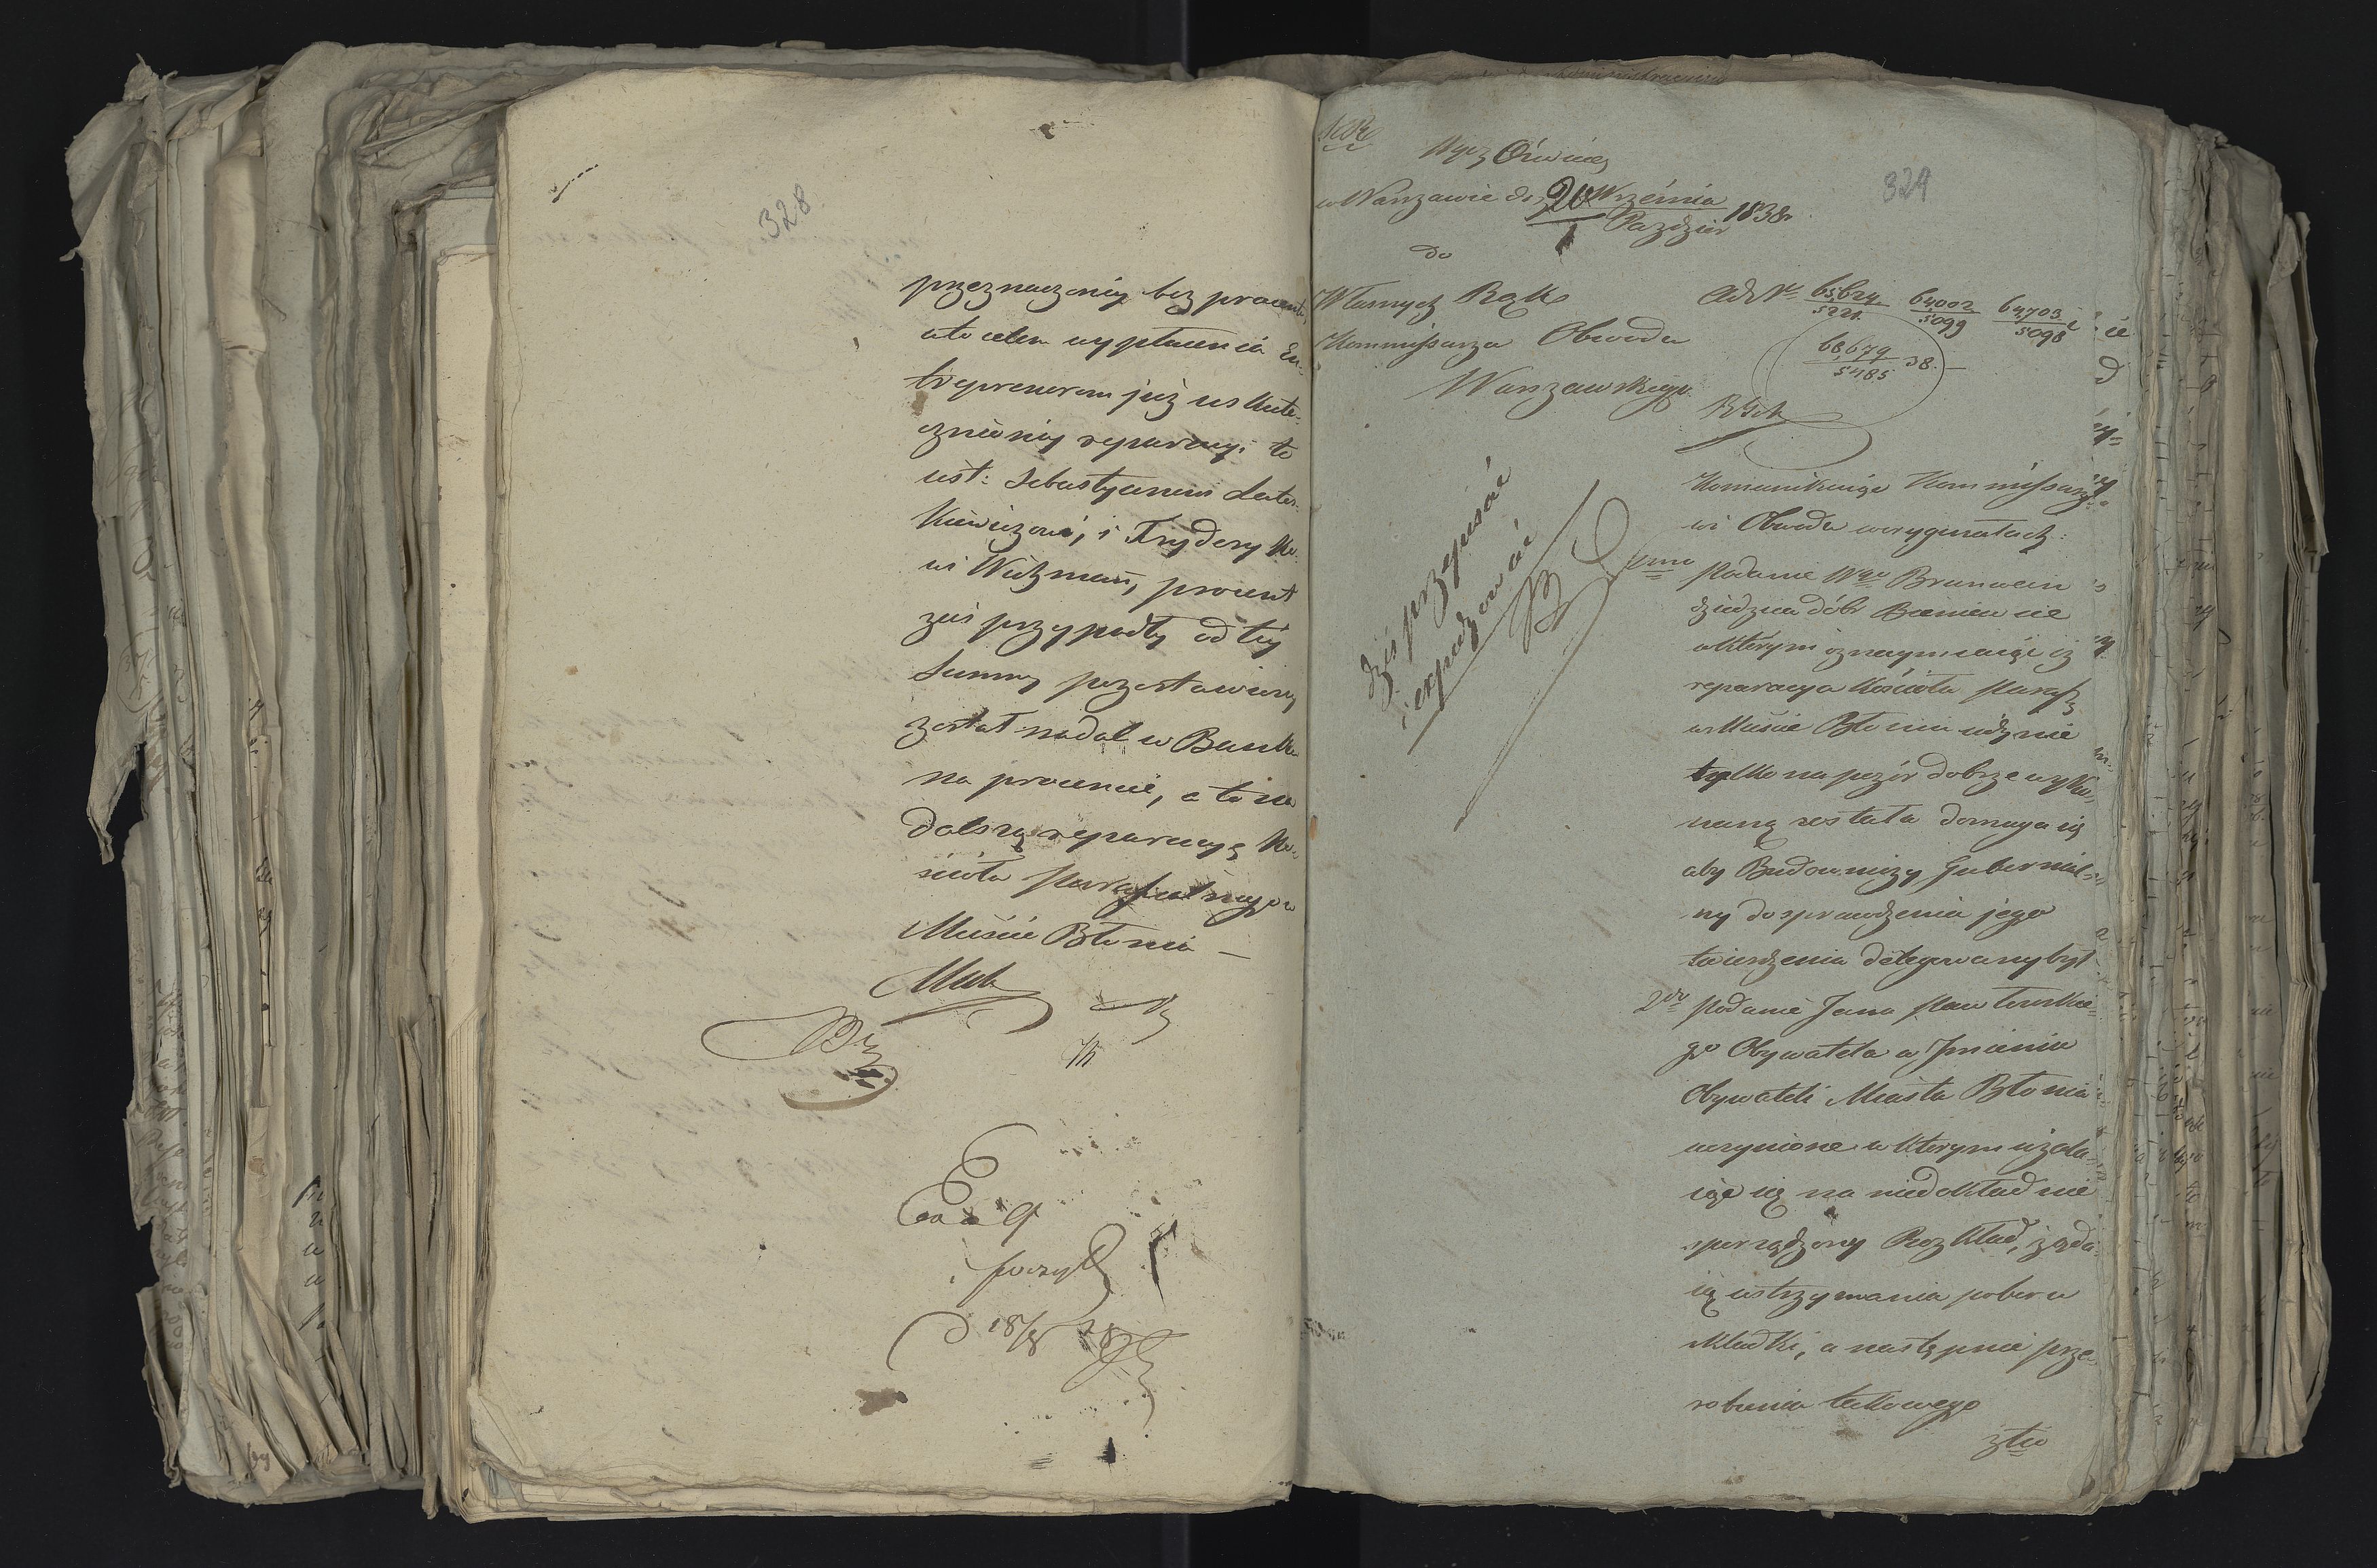 328
przeznaczonéy bez procentu,
a to celem wypłacenia En-
trepreneróm już uskute-
cznionéy reparacyi to
iest: Sebastyanowi Luter-
kiewiczowi, i Frydery ko-
wi Witzmañ, procent
zaś przypadły od téy
Summy pozostawiony
został nadal w Banku
na procencie, a to na
dalszą reparacyę Ko-
ścioła parafialnego w
Mieście Błoniu —
329
Wyz. Oświece
w Warszawie d. 20 Września
1 Paździer 1838
do
Własnych Rąk
Kommissarza Obwodu
Warszawskiego
Ad Nr 65,624/5221 64,002/5099 64,703/5098 i
68,679/5485 38. —
dziś przepisać
i expedjować
Kommunikuiąc Kommissarzo-
wi Obwodu w oryginałach:
1mo podanie Wgo Brunwein
dziedzica dóbr Bieniewic
w którym oznaymiaiąc iż
reparacya Kościoła paraf
w Mieście Błoniu iedynie
tylko na pozór dobrze wyko-
naną została domaga się
aby Budowniczy Gubernial-
ny do sprawdzenia jego
twierdzenia delegowany był
2do podanie Jana Pawłowskie-
go Obywatela w Jmieniu
Obywateli Miasta Błonia
uczynione w którym użala-
iąc się na niedokładnie
sporządzony Rozkład, żąda-
ią wstrzymania poboru
składki, a następnie prze-
robienia takowego
3tio